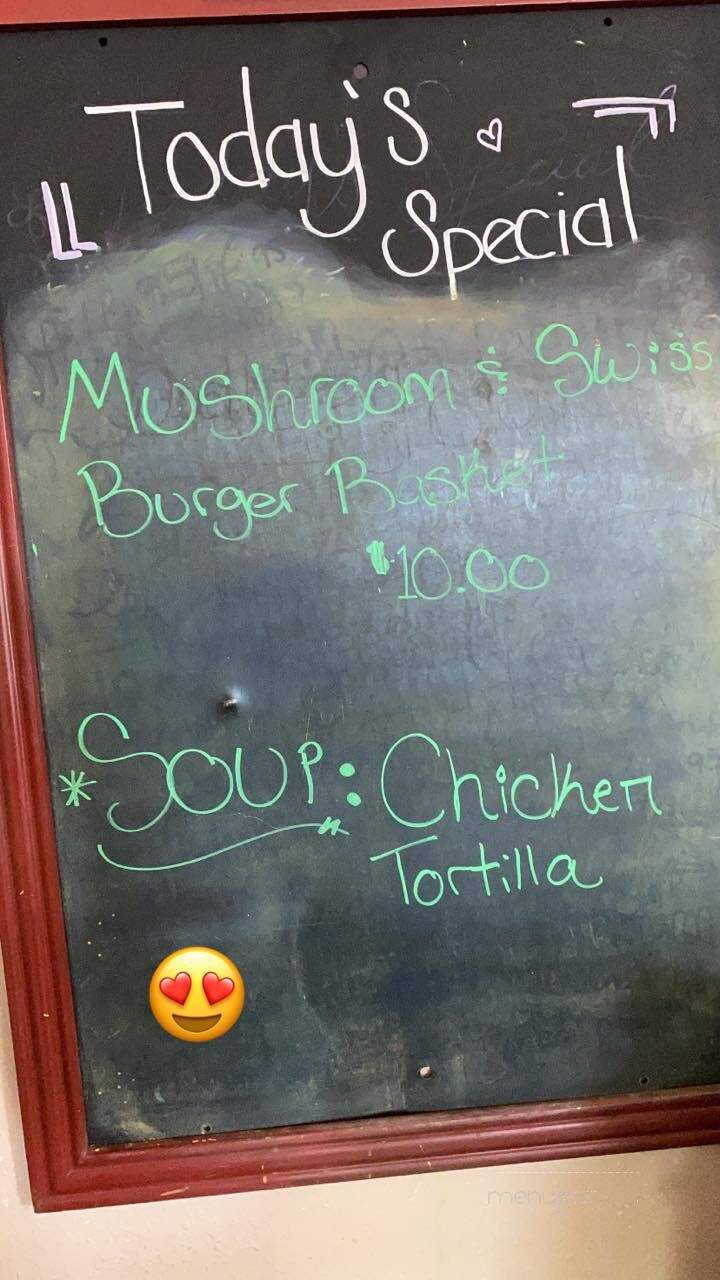 Today's
Special
Mushroom & Swiss
Burger Basket
$10.00
*Soup: Chicken
Tortilla